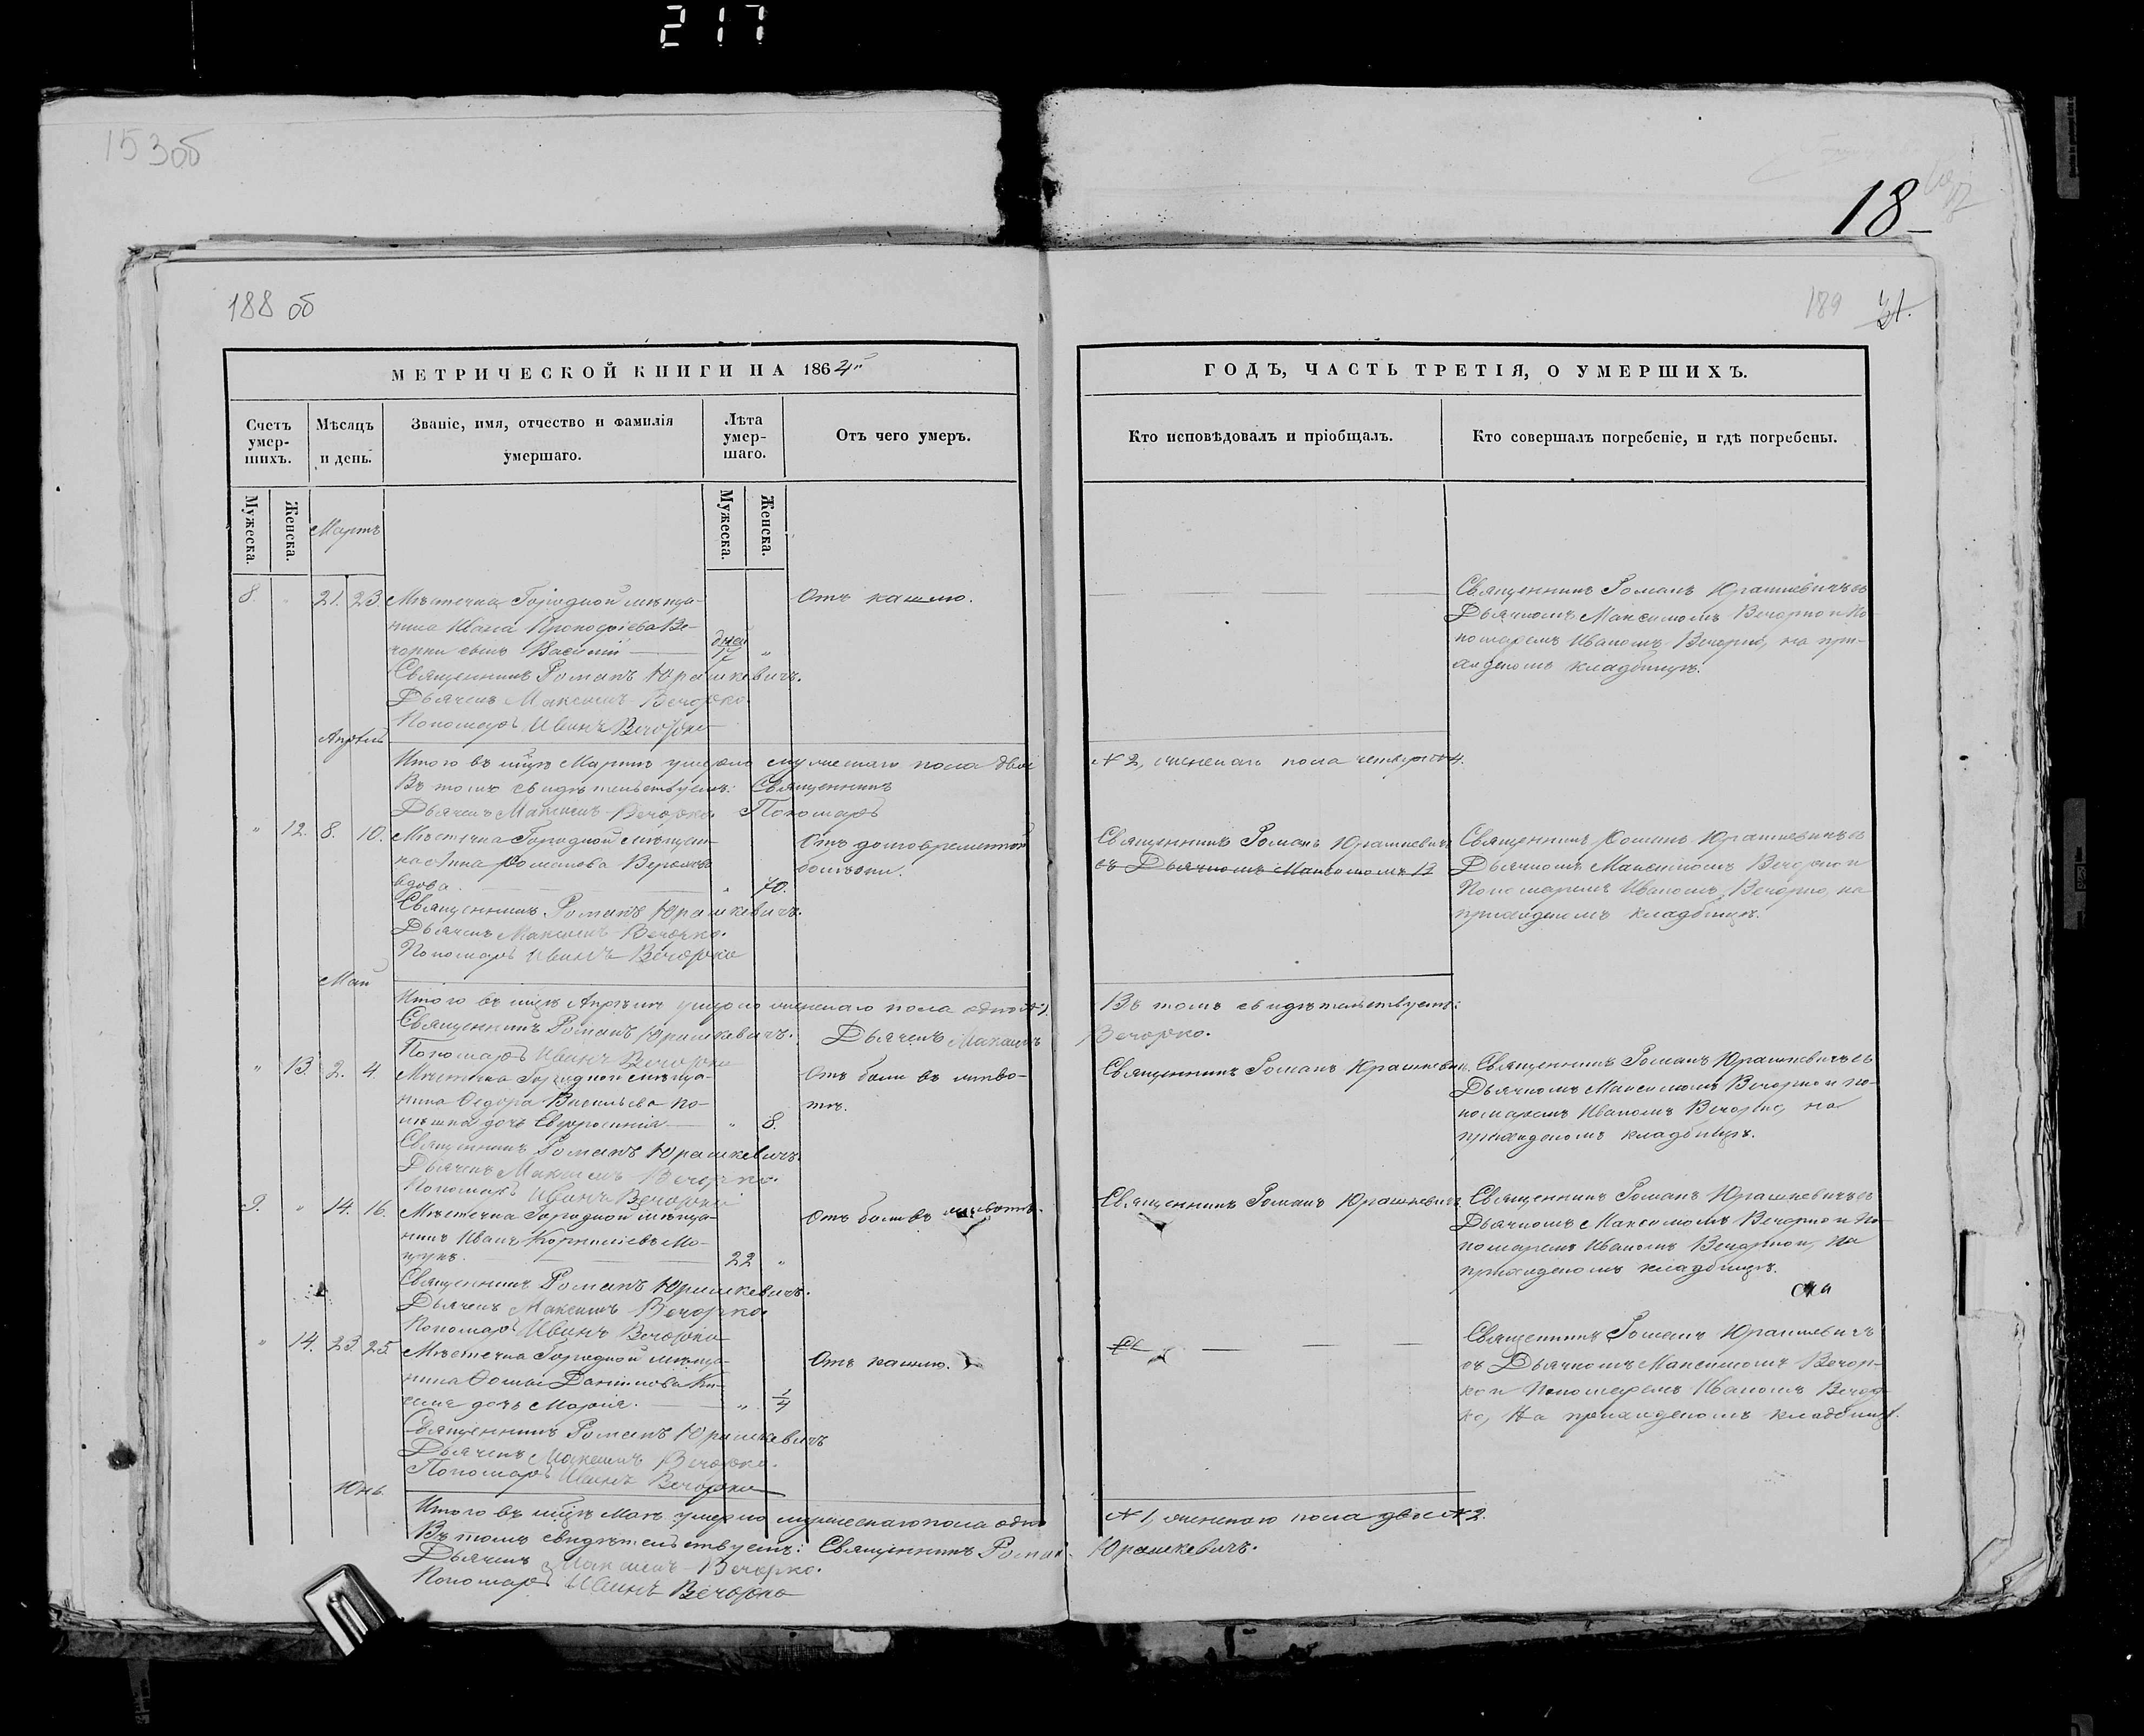 217
153 об
18
188 об
189
МЕТРИЧЕСКОЙ КНИГИ НА 1864
ГОДЪ, ЧАСТЬ ТРЕТІЯ, О УМЕРШИХЪ.
Счетъ умер-шихъ.
Мѣсяцъ и день.
Званіе, имя, отчество и фамилія умершаго.
Лѣта умер-шаго.
Отъ чего умеръ.
Кто исповѣдовалъ и пріобщалъ.
Кто совершалъ погребеніе, и гдѣ погребены.
Мужеска.
Женска.
Мужеска.
Женска.
Мартъ
8. 21. 23.
Мѣстечка Городной мѣща-
нина Ивана Прокофіева Ве-
чорки сынъ Василій
дней 17 "
Отъ кашлю.
Священникъ Романъ Юрашкевичъ съ
Дьячкомъ Максимомъ Вечорко и По-
номаремъ Иваномъ Вечорко, на при-
ходскомъ кладбищѣ.
Священникъ Романъ Юрашкевичъ.
Дьячекъ Максимъ Вечорко
Пономарь Иванъ Вечорко
Апрѣль
Итого въ мцѣ Мартѣ умерло мужескаго пола двое
№ 2, женскаго пола четверо №4.
Въ томъ свидѣтельствуемъ: Священникъ
Дьячекъ Максимъ Вечорко Пономарь
" 12. 8. 10.
Мѣстечка Городной мѣщан-
ка Анна Романова
вдова
" 70.
Отъ долговременной
болѣзни.
Священникъ Романъ Юрашкевичъ
съ Дьячкомъ Максимомъ
Священникъ Романъ Юрашкевичъ съ
Дьячкомъ Максимомъ Вечорко и
Пономаремъ Иваномъ Вечорко, на
приходскомъ кладбищѣ.
Священникъ Романъ Юрашкевичъ.
Дьячекъ Максимъ Вечорко.
Пономарь Иванъ Вечорко
Май
Итого въ мцѣ Апрѣлѣ умерло женскаго пола одно №1.
Въ томъ свидѣтельствуемъ:
Священникъ Романъ Юрашкевичъ. Дьячекъ Максимъ
Вечорко.
Пономарь Иванъ Вечорко
" 13. 2. 4.
Мѣстечка Городной мѣща-
нина Ѳедора Васильева
дочь Евфросинія
" 8.
Отъ боли въ живо-
тѣ.
Священникъ Романъ Юрашкевичъ
Священникъ Романъ Юрашкевичъ съ
Дьячкомъ Максимомъ Вечорко и по-
номаремъ Иваномъ Вечорко, на
приходскомъ кладбищѣ.
Священникъ Романъ Юрашкевичъ.
Дьячекъ Максимъ Вечорко.
Пономарь Иванъ Вечорко
9. " 14. 16.
Мѣстечка Городной мѣща-
нинъ Иванъ Корниліевъ
22 "
Отъ боли въ животѣ.
Священникъ Романъ Юрашкевичъ
Священникъ Романъ Юрашкевичъ съ
Дьячкомъ Максимомъ Вечорко и По-
номаремъ Иваномъ Вечоркою, на
приходскомъ кладбищѣ.
Священникъ Романъ Юрашкевичъ.
Дьячекъ Максимъ Вечорко.
Пономарь Иванъ Вечорко
" 14. 23. 25.
Мѣстечка Городной мѣща-
нина Ѳомы Даніилова
дочь Марія.
" 1/4
Отъ кашлю.
Священникъ Романъ Юрашкевичъ
съ Дьячкомъ Максимомъ Вечор-
ко и Пономаремъ Иваномъ Вечор-
ко, На приходскомъ кладбищѣ.
Священникъ Романъ Юрашкевичъ
Дьячекъ Максимъ Вечорко.
Пономарь Иванъ Вечорко
Юнь
Итого въ мцѣ Маѣ умерло мужескаго пола одно
№ 1, женскаго пола двое № 2.
Въ томъ свидѣтельствуемъ: Священникъ Романъ
Юрашкевичъ.
Дьячекъ Максимъ Вечорко.
Пономарь Иванъ Вечорко